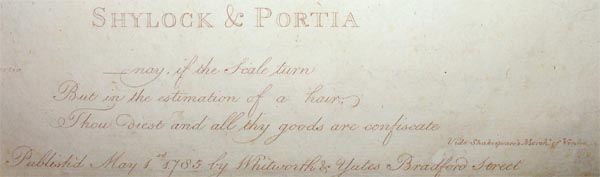 SHYLOCK & PORTIA
—nay, if the Scale turn
But in the estimation of a hair,
Thou diest and all thy goods are confiscate
Vide Shakespear's Merch.t of Venice
Publish'd May 1st 1785 by Whitworth & Yates Bradford Street